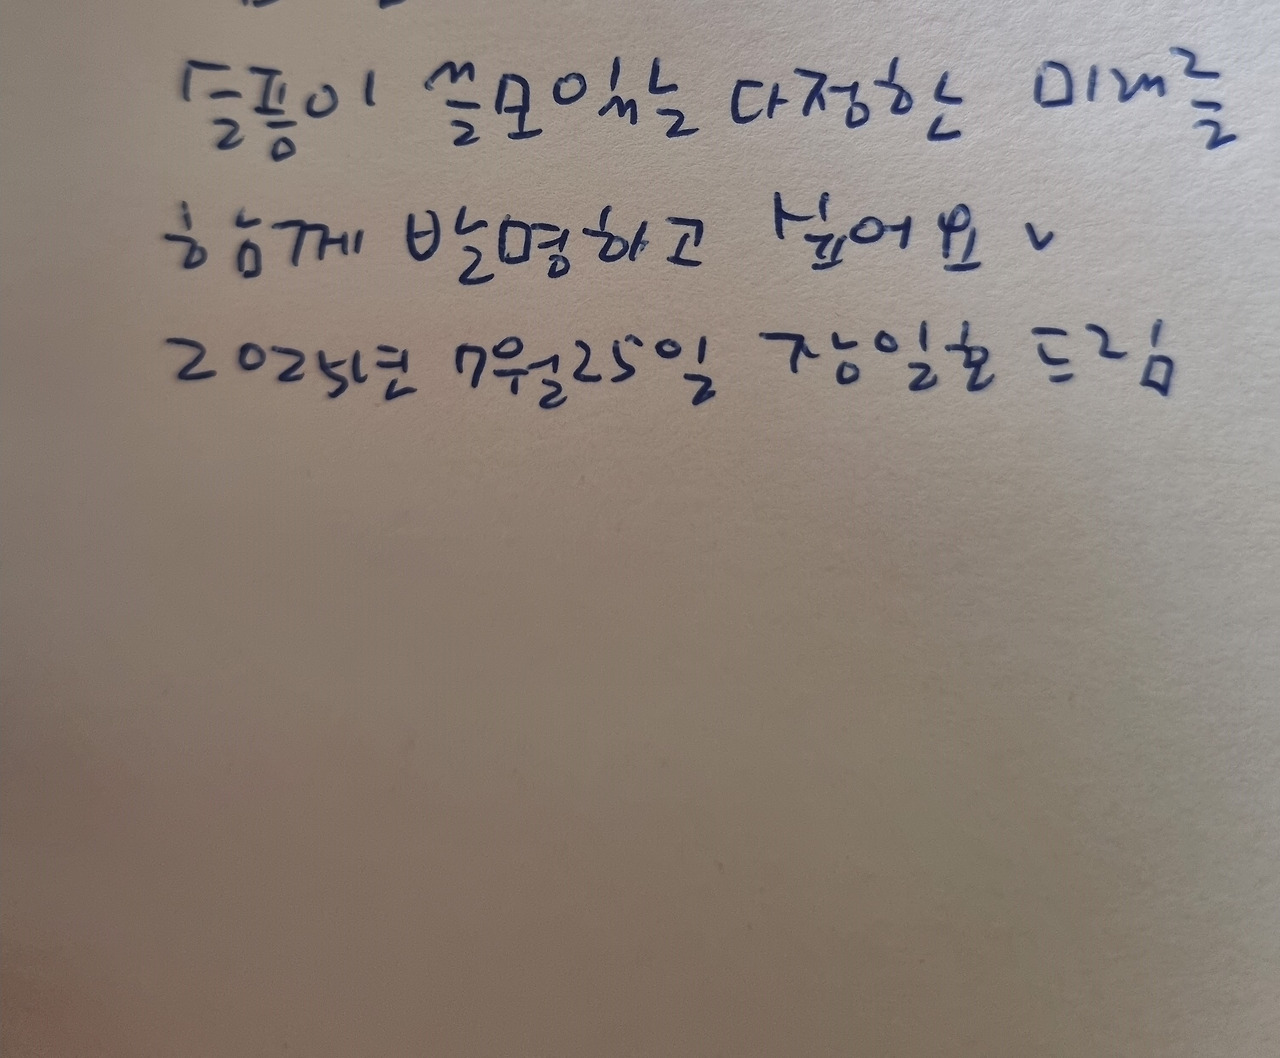 들풍이 쓸모있는 다정한 미래를
함께 발명하고 싶어요 ✓
2025년 7월25일 장일호 드림